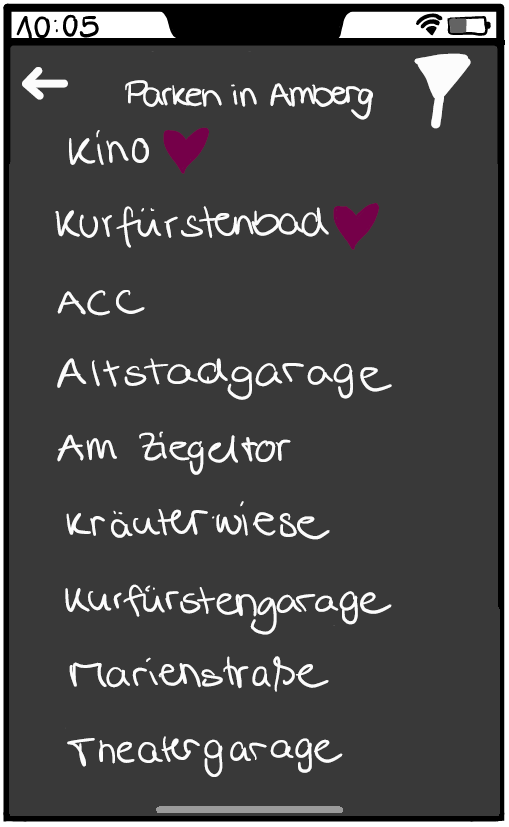 10:05
Parken in Amberg
Kino
Kurfürstenbad
ACC
Altstadgarage
Am Ziegeltor
Kräuterwiese
Kurfürstengarage
Marienstraße
Theatergarage